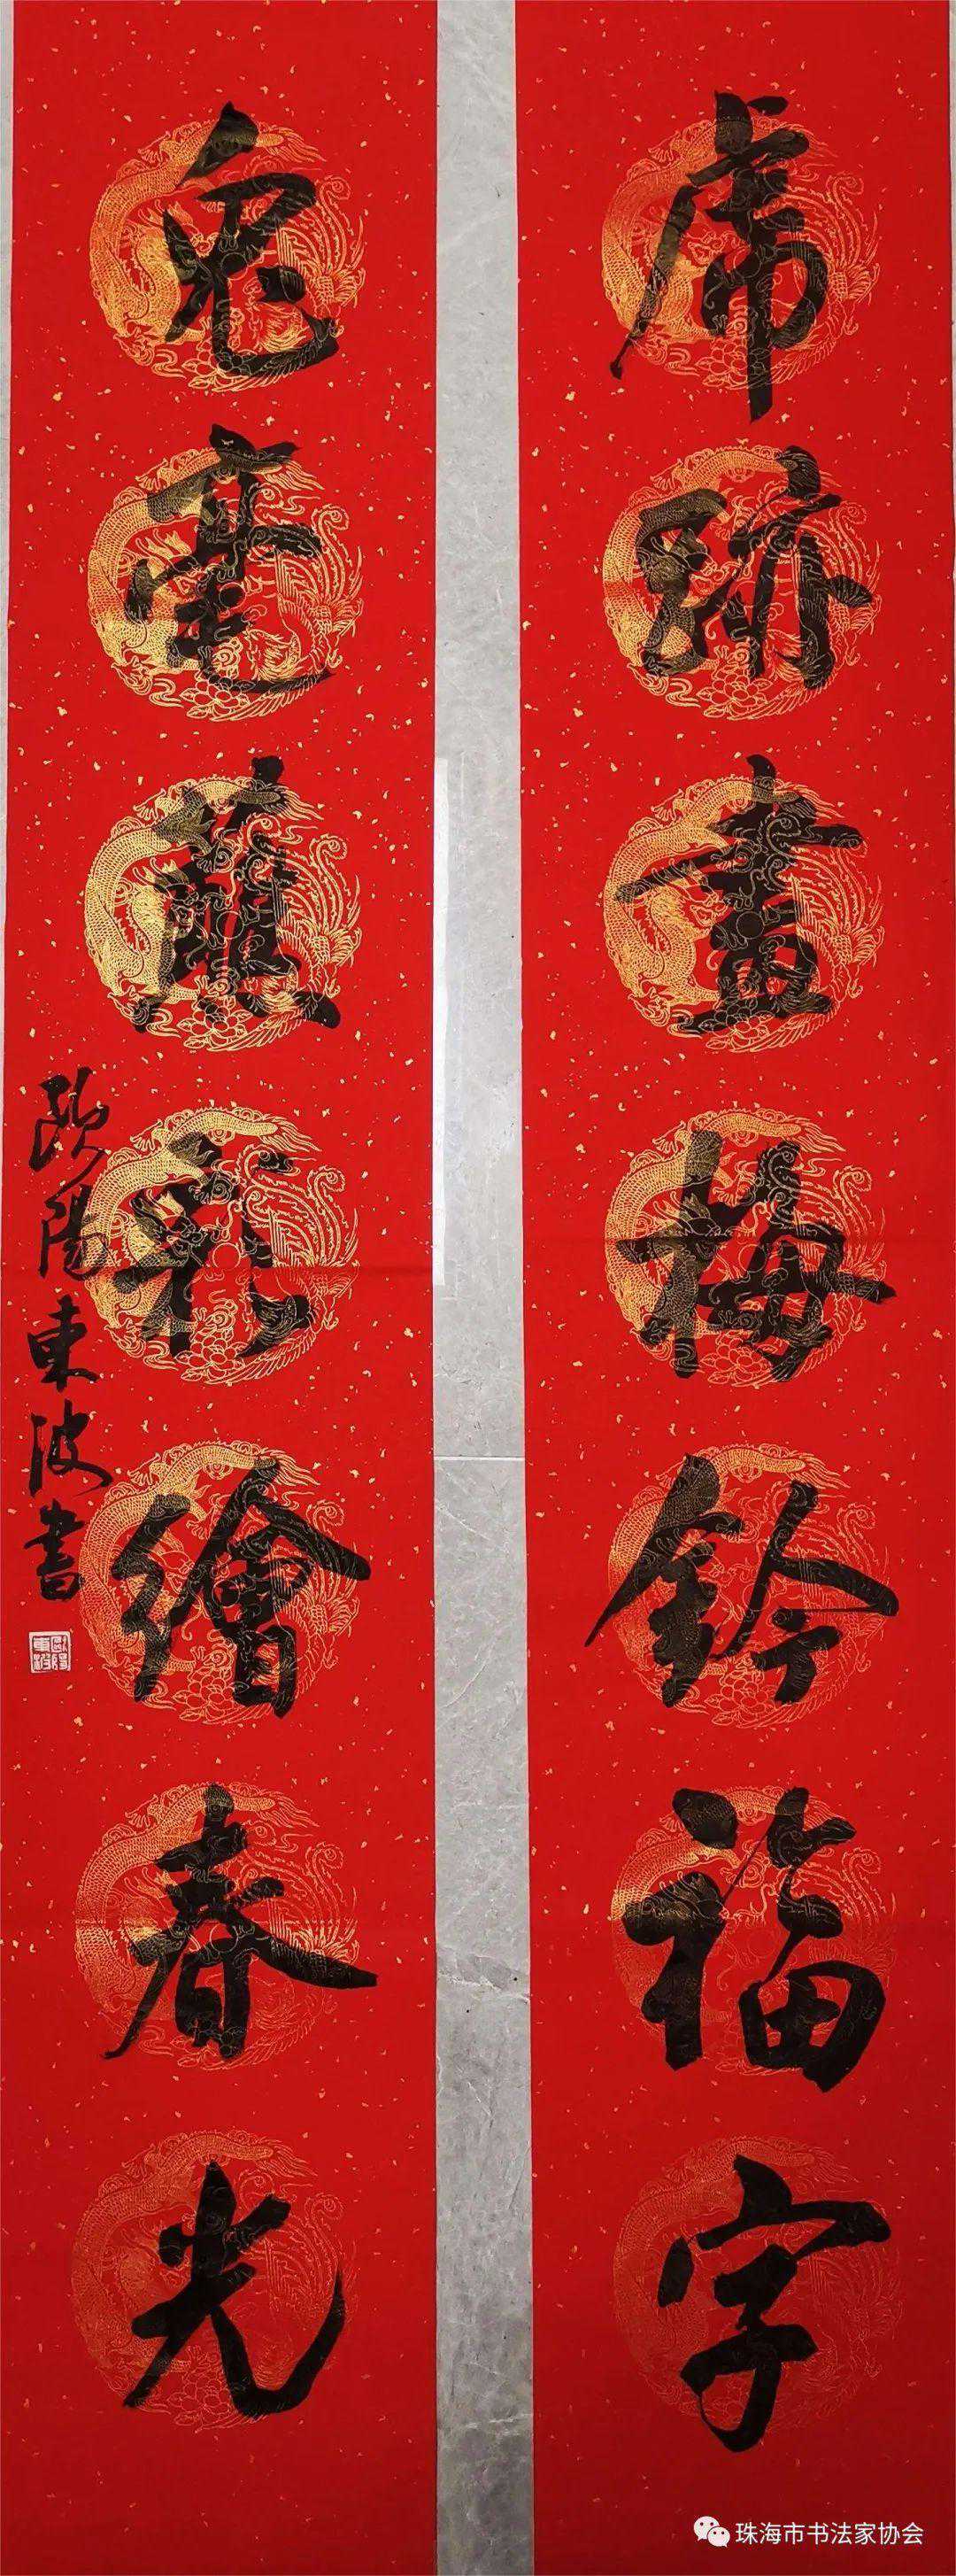 虎跡畫梅鈐福字
兔毫蘸彩繪春光
歐陽東波書
歐陽東波
珠海市书法家协会